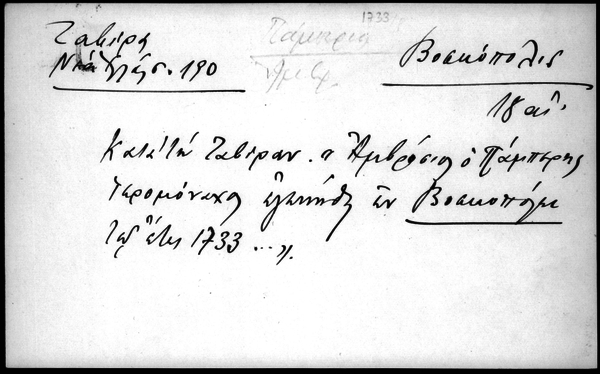 Ζαβίρα
Νέα Ἑλλάς. 190
1733
Πάμπερις
Ἀμβρ.
Βοσκόπολις
18 αἰ.
Κατὰ τὴν Ζαβίραν. « Ἀμβρόσιος ὁ Πάμπερης
Ἱερομόναχος ἐγεννήθη ἐν Βοσκοπόλει
τῷ ἔτει 1733 ... ».